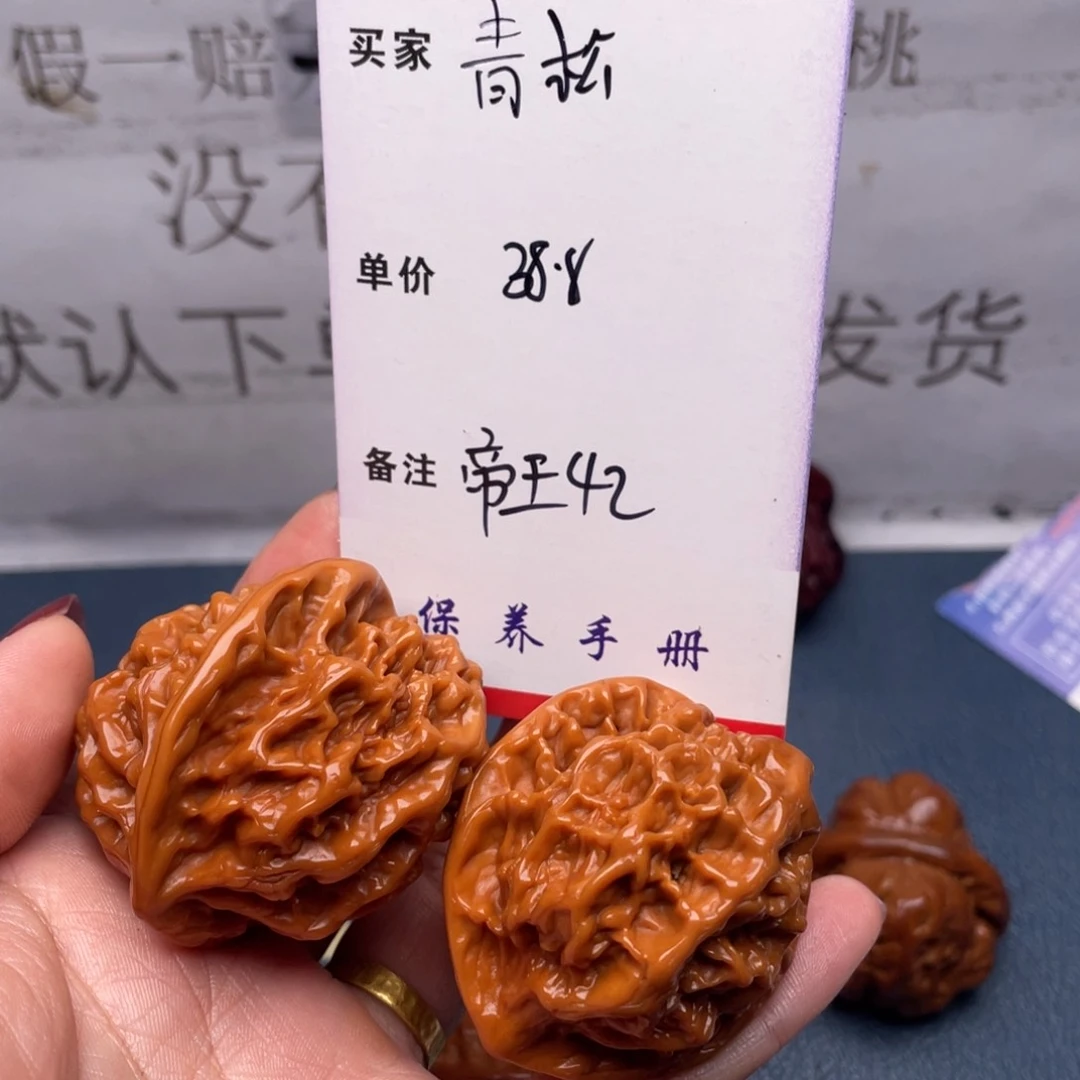 假一赔
桃
买家 青松
没
单价 38.8
默认下单
发货
备注 帝王42
保养手册